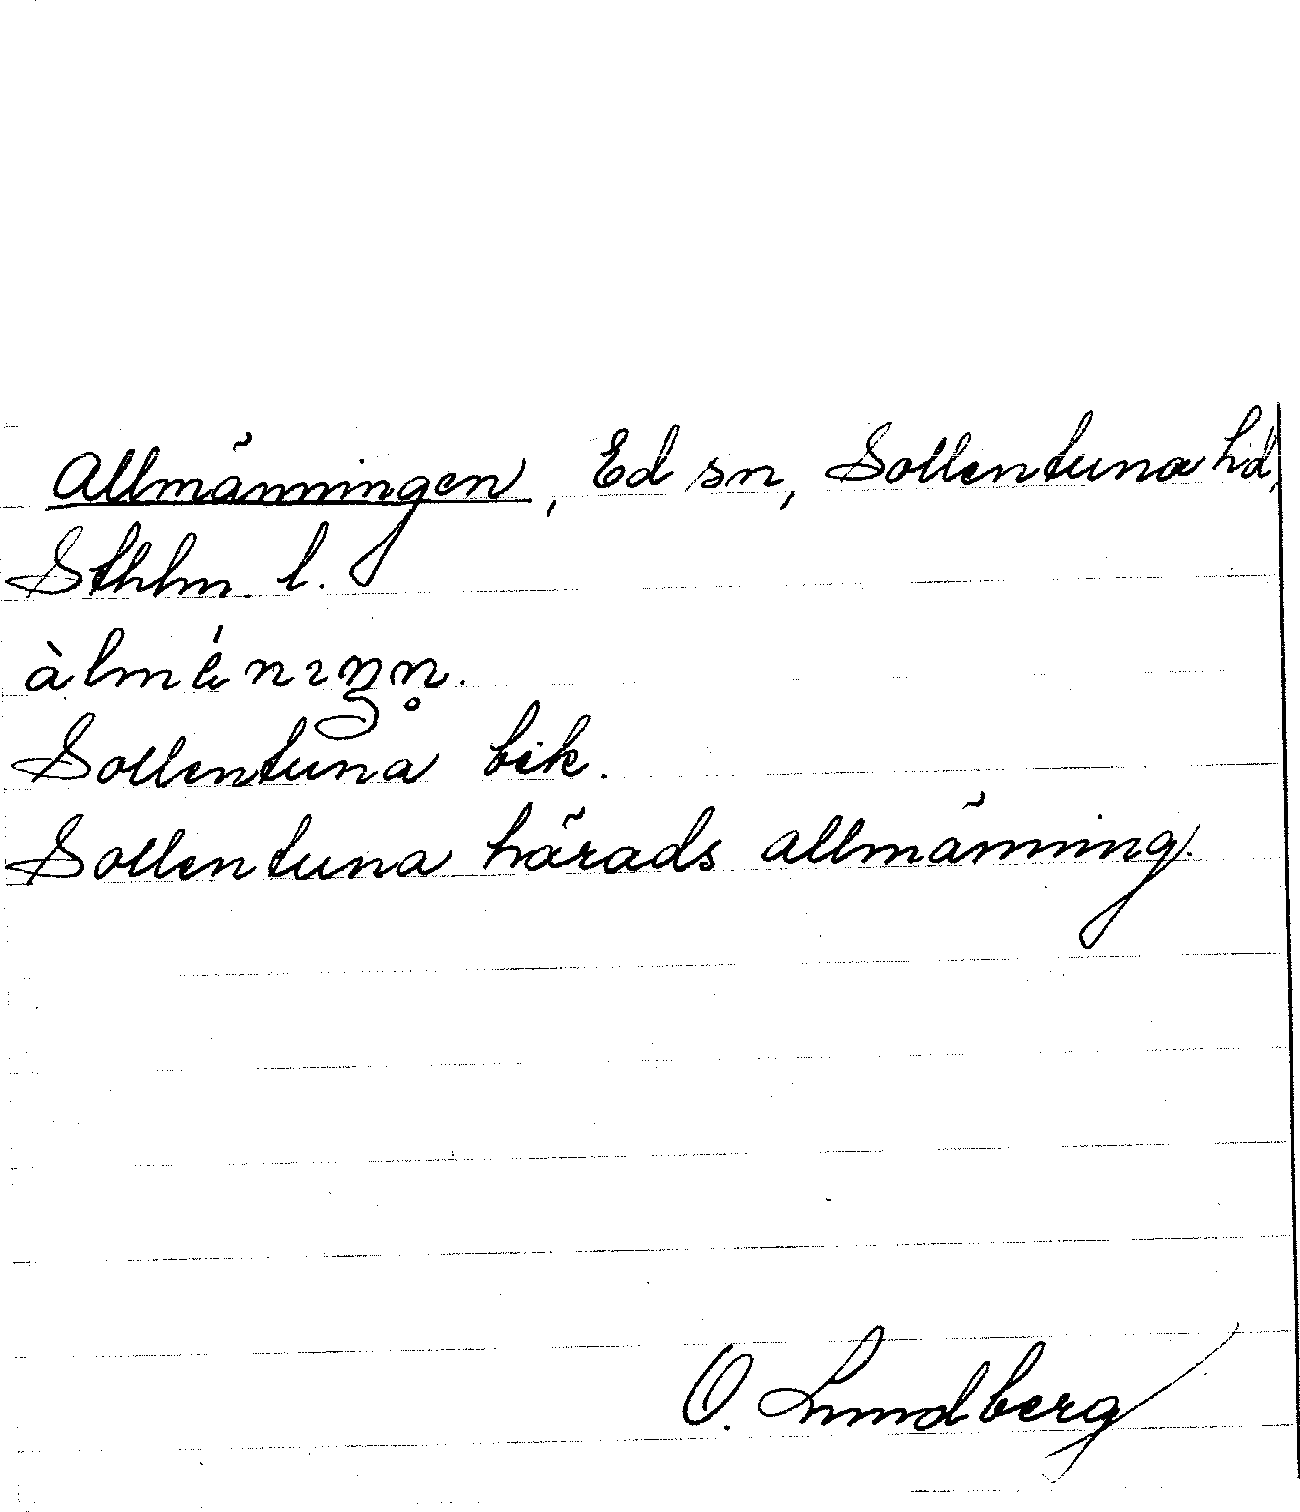 Allmänningen, Ed sn, Sollentuna hd,
Sthlm. l.
Sollentuna bik.
Sollentuna härads allmänning.
O. Lundberg